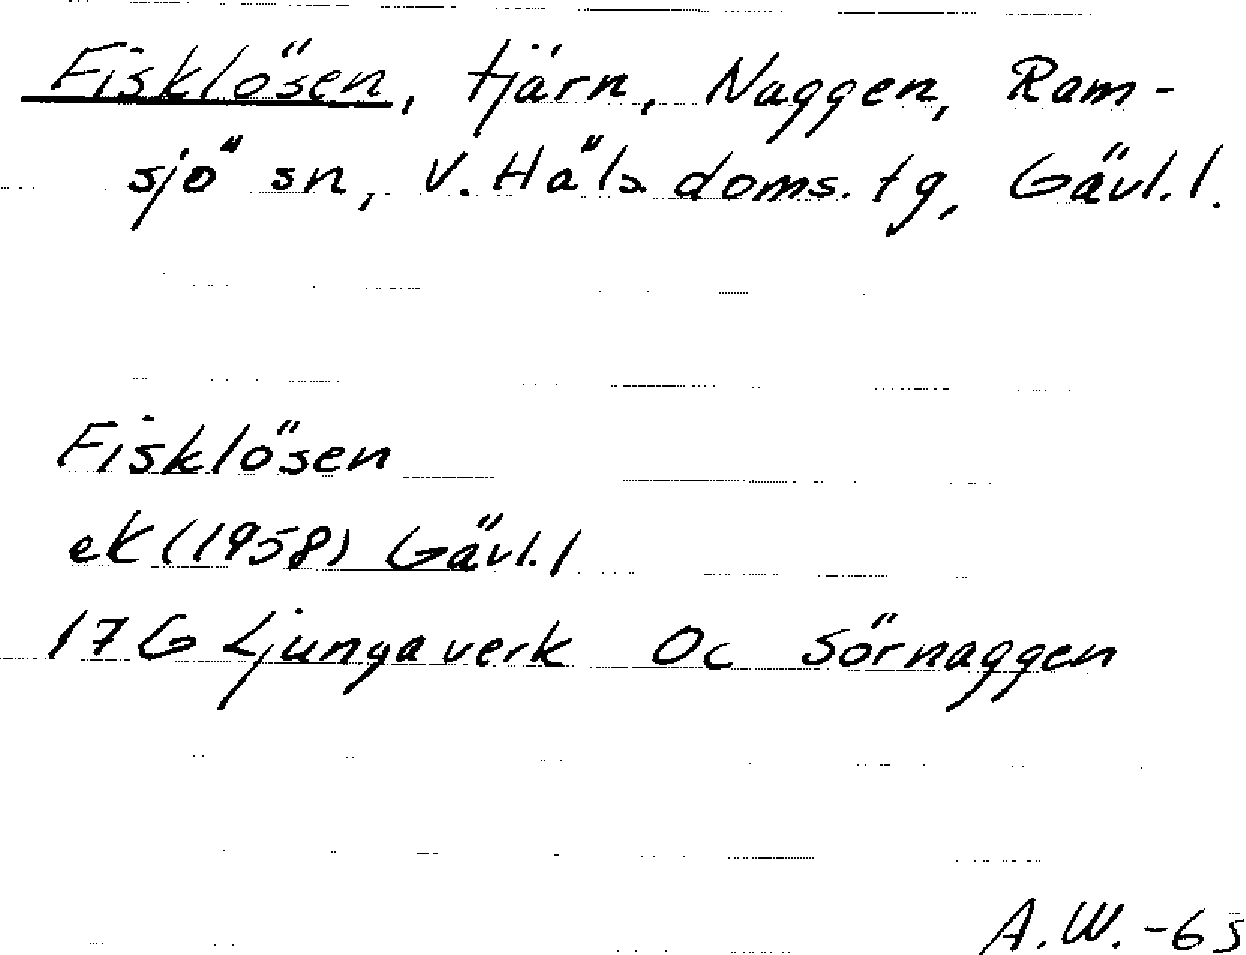 Fisklösen, tjärn, Naggen, Ram-
sjö sn, V. Häls doms. tg, Gävl. l.
Fisklösen
eK (1958) Gävl. l
17G Ljungaverk Oc Sörnaggen
A.W. -65